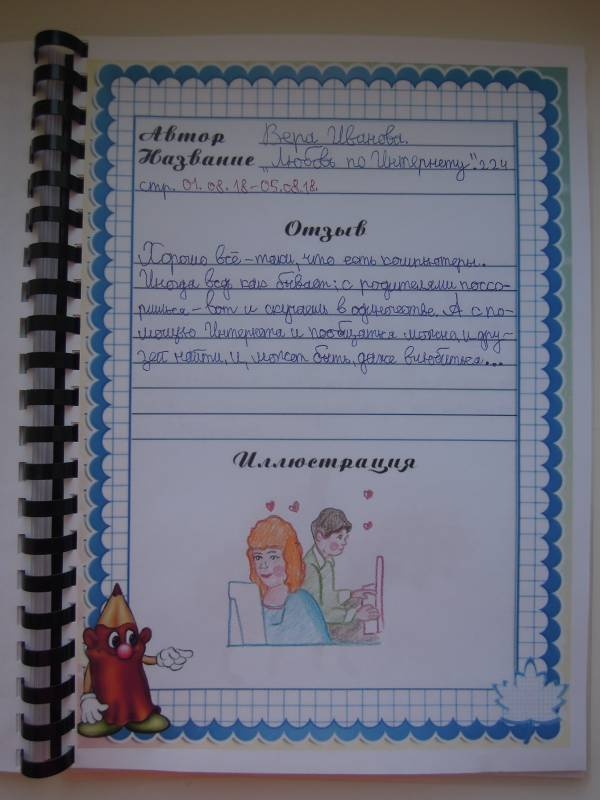 Автор Вера Иванова.
Название „Любовь по Интернету". 224
стр. 01.08.18-05.08.18.
Отзыв
Хорошо всё-таки, что есть компьютеры.
Иногда ведь как бывает: с родителями поссо-
ришься - вот и скучаешь в одиночестве. А с по-
мощью Интернета и пообщаться можно, и дру-
зей найти, и, может быть, даже влюбиться...
Иллюстрация